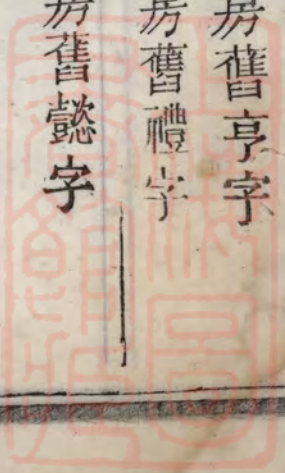 房舊亨字
房舊禮字
房舊懿字